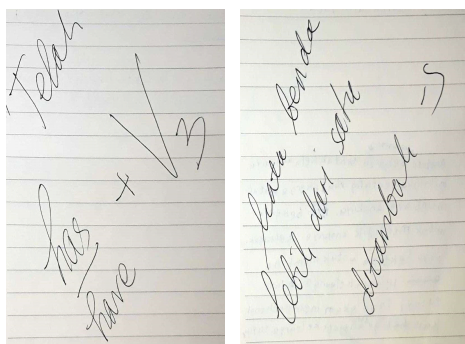 Telah
has + V3
have
kata benda
lebih dari satu
ditambah -s